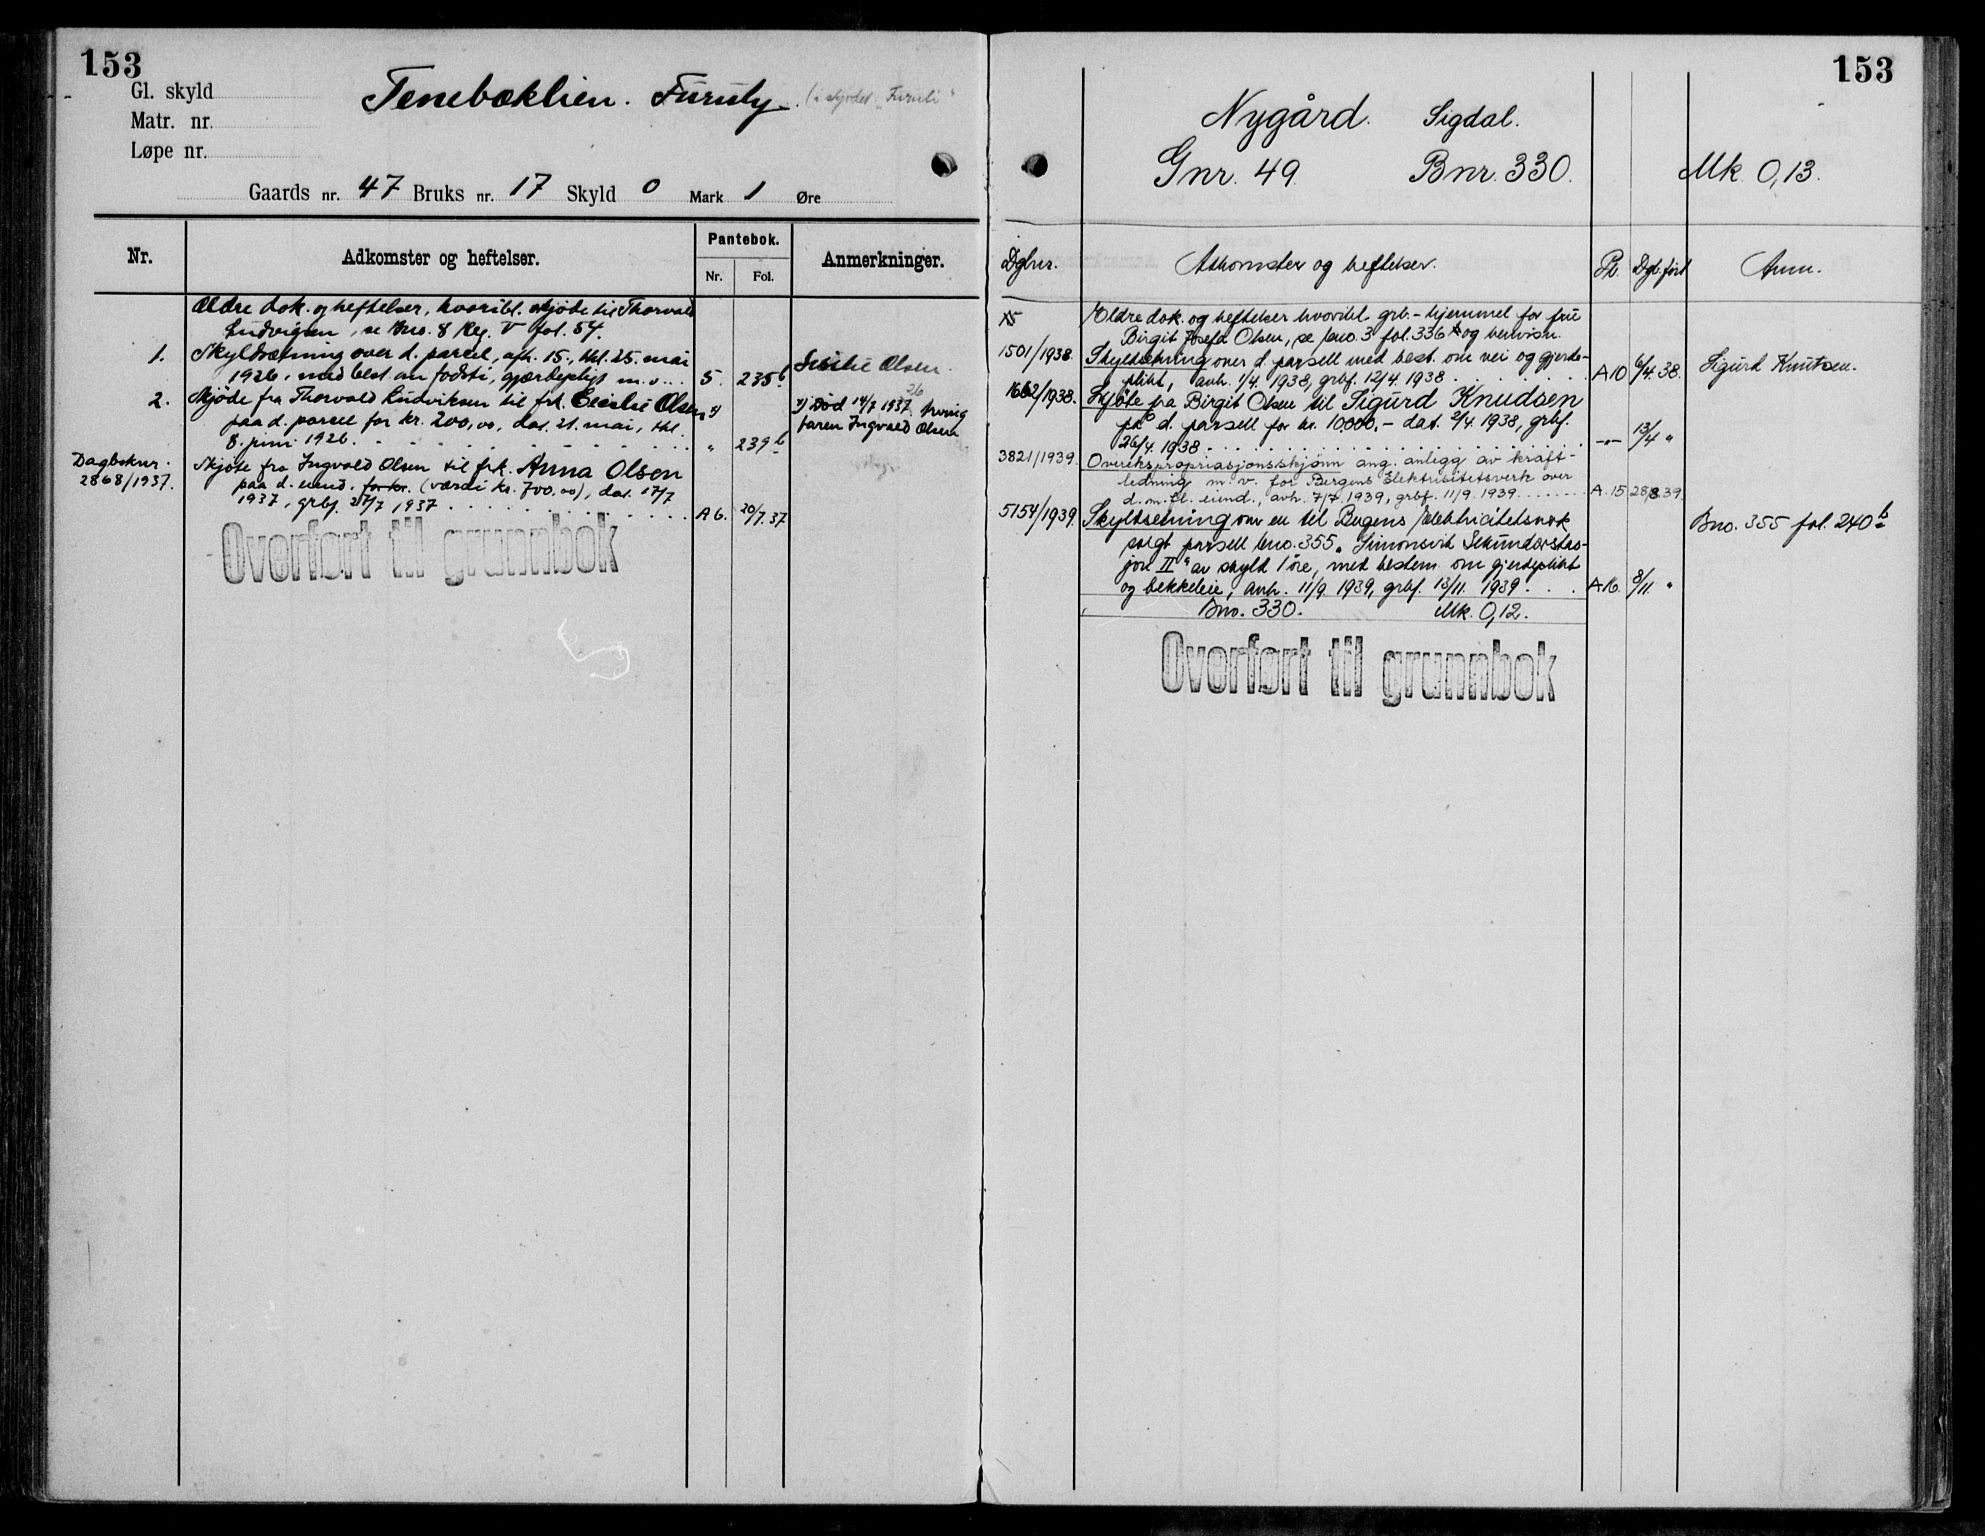 153
Gl. skyld
Matr. nr.
Løpe nr.
Tenebæklien. Furuly. (i skjødet: "Furuli"
Gaards nr. 47 Bruks nr. 17 Skyld 0 Mark 1 Øre
Nr.
Adkomster og heftelser.
Pantebok.
Nr.
Fol.
Anmerkninger.
Ældre dok. og heftelser, hvoribl. skjøde til Thorvald
Ludvigsen, se Bno. 8 Reg. V fol. 54.
1. Skyldsætning over d. parcel, afh. 15., thl. 25. mai
1926, med best. om fodsti, gjærdepligt m. v. .. 5. 235b
Olsen.
2. Skjøde fra Thorvald Ludviksen til frk. Olsen x)
paa d. parcel for kr. 200,00, dat. 21. mai, thl.
8. juni 1926. " 239b
x) Død 14/7 1937.
faren Ingvald Olsen
Dagboknr.
2868/1937.
Skjøte fra Ingvald Olsen til frk. Anna Olsen
paa d. eiend. for kr. (værdi kr. 700,00), dat. 17/7
1937, grbf. 27/7 1937 A 6. 20/7.37
Overført til grunnbok
153
Nygård. Sigdal.
Gnr. 49. Bnr. 330. Mk. 0,13.
Dgbnr.
Atkomster og heftelser.
Pb.
Dgb.ført
Anm.
Ældre dok. og heftelser hvoribl. grb.-hjemmel for fru
Birgit Josefa Olsen, se bno. 3 fol. 336 og henvisn.
1501/1938. Skyldsetning over d. parsell med best. om vei og gjerde-
plikt, avh. 1/4. 1938, grbf. 12/4. 1938 A 10 6/4. 38. Sigurd Knutsen.
1662/1938. Skjøte fra Birgit Olsen til Sigurd Knudsen
på d. parsell for kr. 10.000.- dat. 2/4. 1938, grbf.
26/4. 1938 -"- 13/4 "
3821/1939. Overekspropriasjonsskjønn ang. anlegg av kraft-
ledning m. v. for Bergens Elektrisitetsverk over
d. m. fl. eiend., avh. 7/7. 1939, grbf. 11/9. 1939 A. 15 28/8.39.
5154/1939. Skyldsetning over en til Bergens Elektricitetsverk
solgt parsell bno. 355 „Simonsvik Sekundærstas-
jon II" av skyld 1 øre, med bestem. om gjerdeplikt
og bekkeleie, avh. 11/9. 1939, grbf. 13/11. 1939 A 16. 8/11. "
Bno. 355 fol. 240b
Bno. 330. Mk. 0,12.
Overført til grunnbok